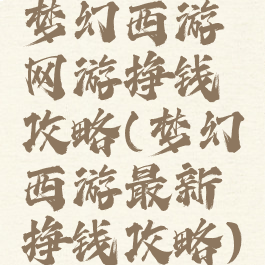 梦幻西游
网游挣钱
攻略(梦幻
西游最新
挣钱攻略)